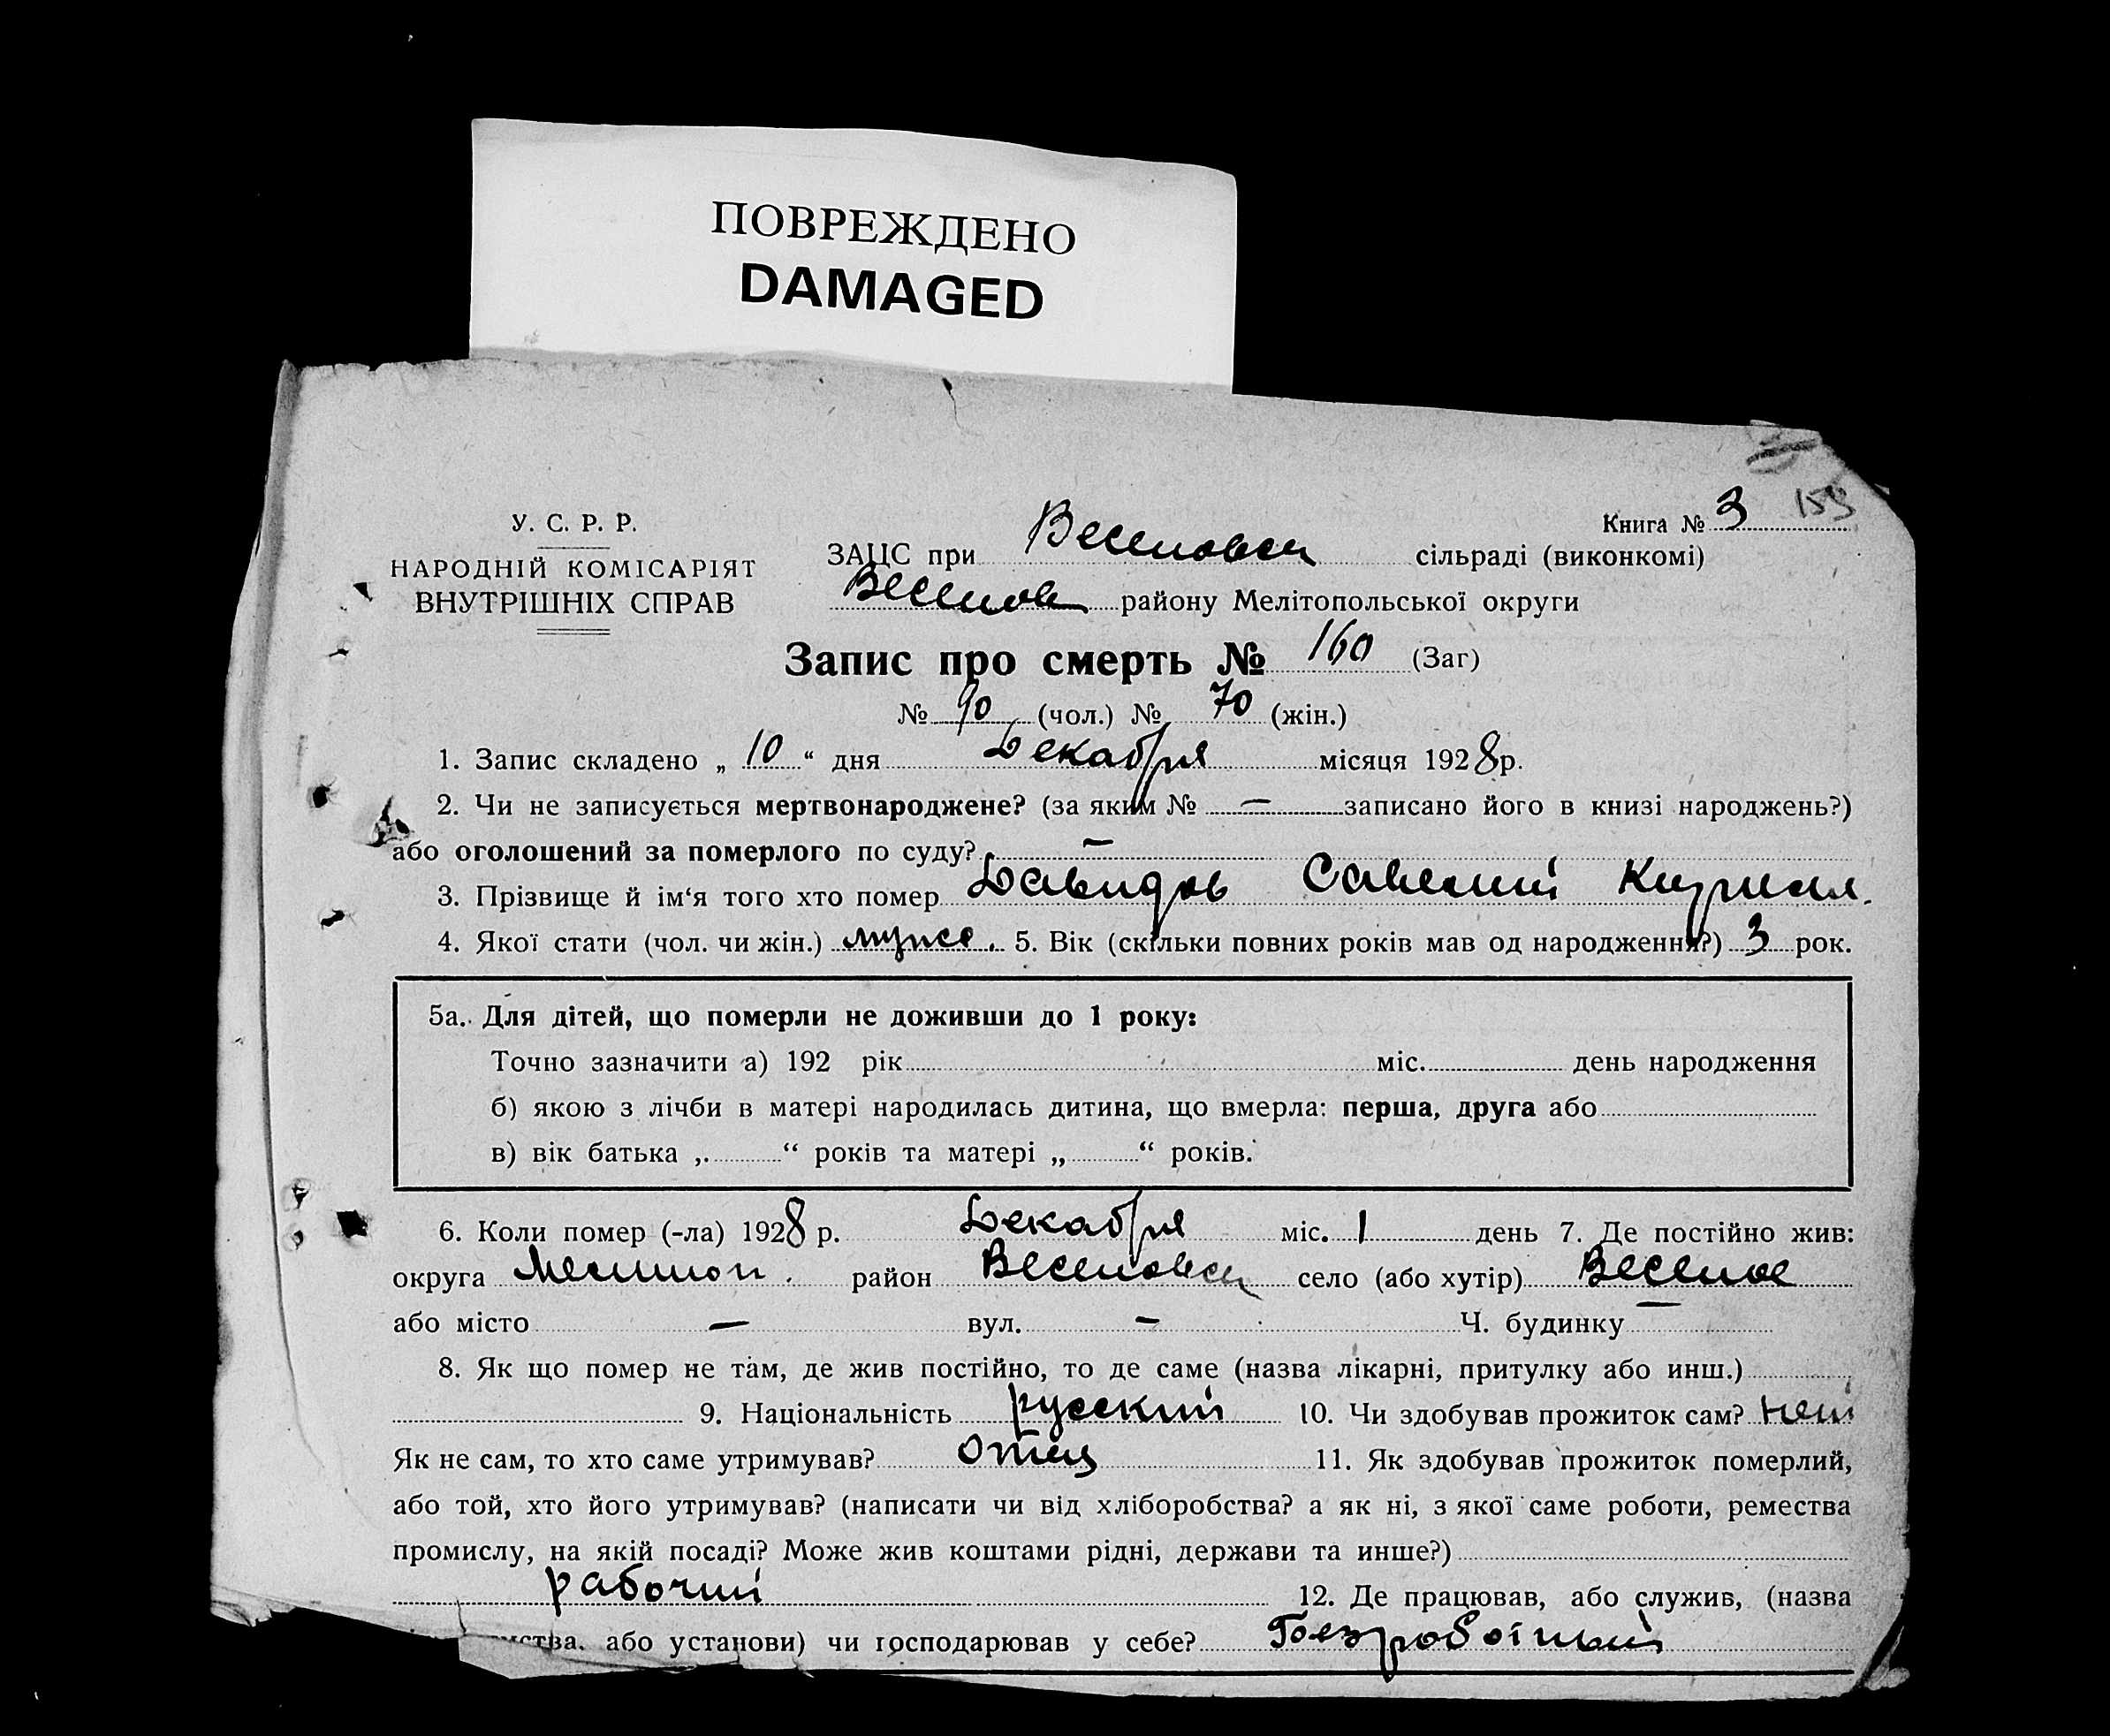 ПОВРЕЖДЕНО
DAMAGED
У. С. Р. Р.
НАРОДНІЙ КОМІСАРІЯТ
ВНУТРІШНІХ СПРАВ
Книга № 3 159
ЗАЦС при Веселовск сільраді (виконкомі)
Веселов району Мелітопольської округи
Запис про смерть № 160 (Заг)
№ 90 (чол.) № 70 (жін.)
1. Запис складено „ 10 “ дня Декабря місяця 1928 р.
2. Чи не записується мертвонароджене? (за яким № — записано його в книзі народжень?)
або оголошений за померлого по суду? —
3. Прізвище й ім‘я того хто помер Давидов Савелий
4. Якої стати (чол. чи жін.) мужск. 5. Вік (скільки повних років мав од народження?) 3 рок.
5а. Для дітей, що померли не доживши до 1 року:
Точно зазначити а) 192 рік міс. день народження
б) якою з лічби в матері народилась дитина, що вмерла: перша, друга або
в) вік батька „ “ років та матері „ “ років.
6. Коли помер (-ла) 1928 р. Декабря міс. 1 день 7. Де постійно жив:
округа Мелитоп. район Веселовск село (або хутір) Веселое
або місто — вул. — Ч. будинку —
8. Як що помер не там, де жив постійно, то де саме (назва лікарні, притулку або инш.)
9. Національність русский 10. Чи здобував прожиток сам? нет
Як не сам, то хто саме утримував? отец 11. Як здобував прожиток померлий,
або той, хто його утримував? (написати чи від хліборобства? а як ні, з якої саме роботи, ремества
промислу, на якій посаді? Може жив коштами рідні, держави та инше?)
рабочий 12. Де працював, або служив, (назва
або установи) чи господарював у себе? Безработный